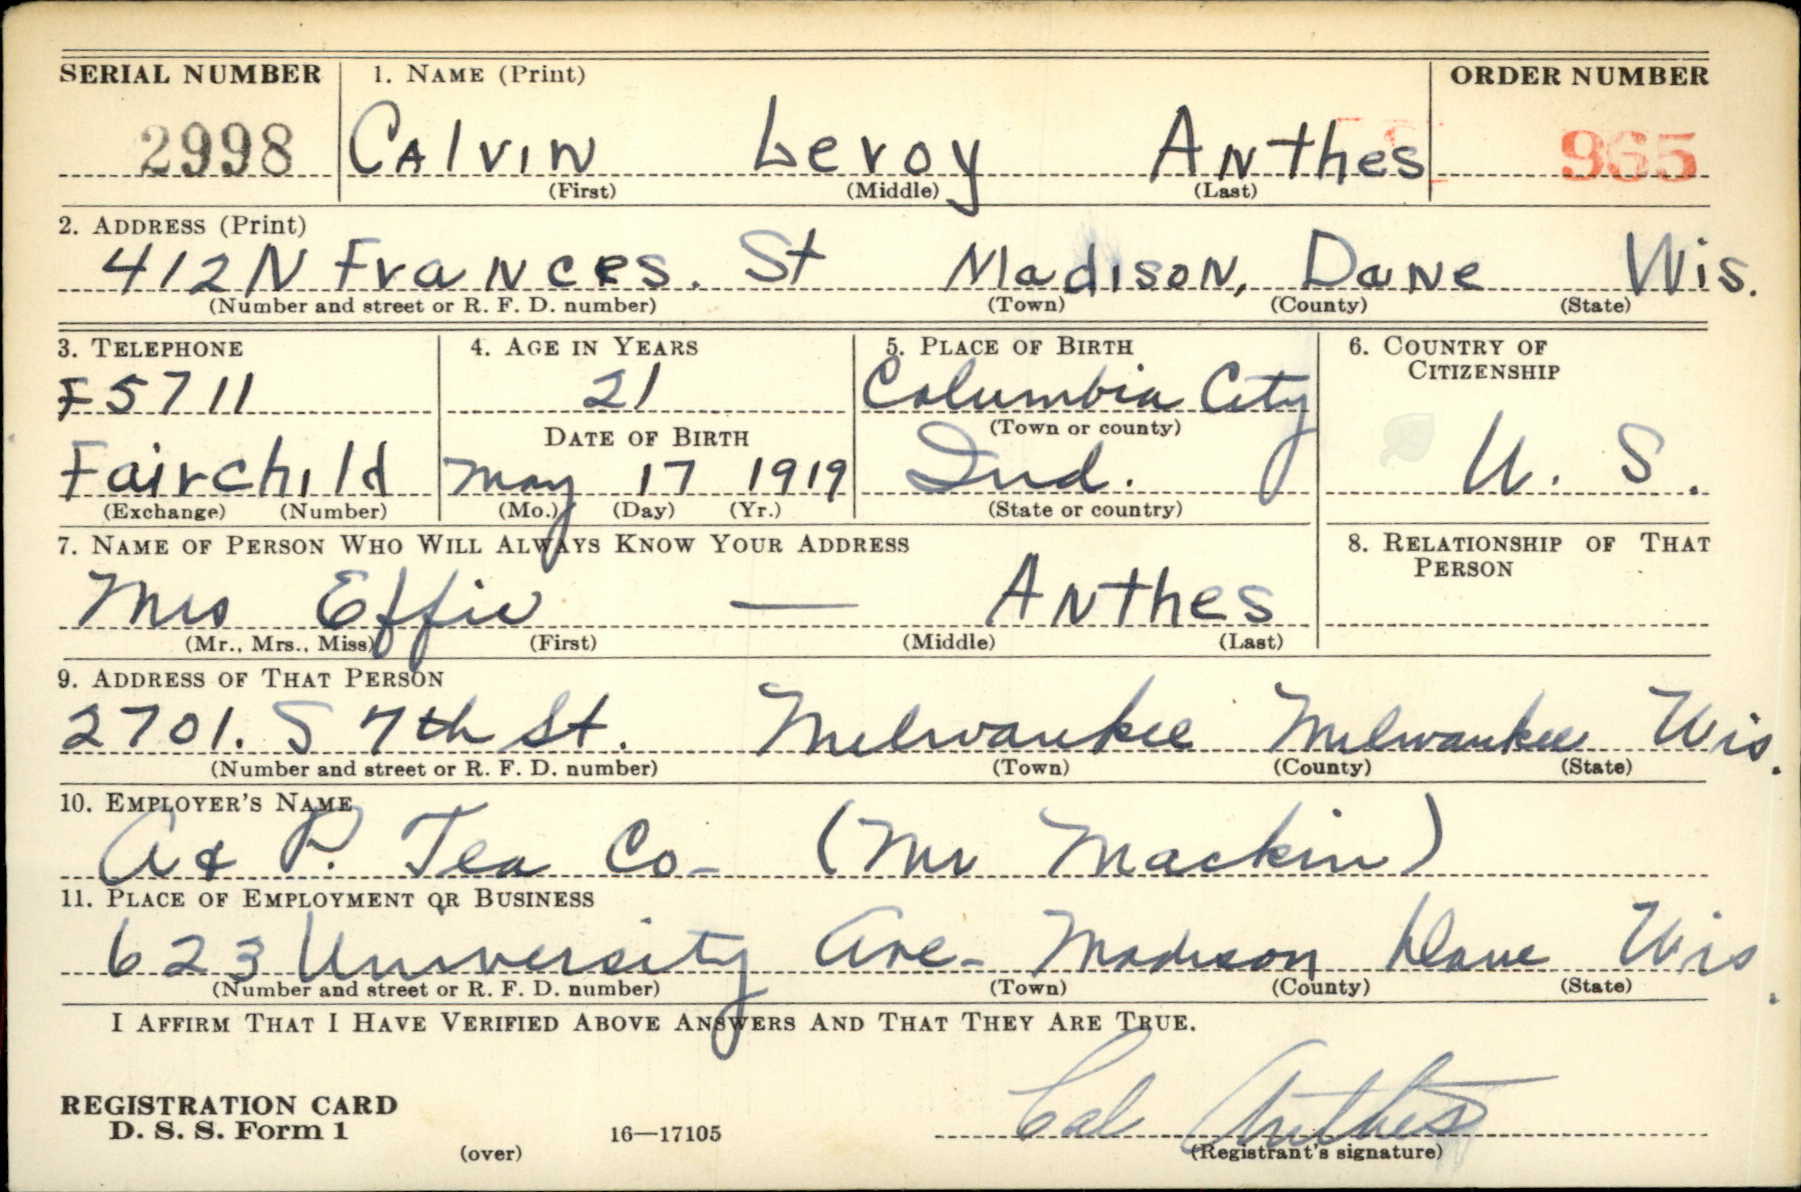 SERIAL NUMBER 1. NAME (Print) ORDER NUMBER
2998 Calvin Leroy Anthes 965
(First) (Middle) (Last)
2. ADDRESS (Print)
412 N Frances. St Madison, Dane Wis.
(Number and street or R. F. D. number) (Town) (County) (State)
3. TELEPHONE 4. AGE IN YEARS 5. PLACE OF BIRTH 6. COUNTRY OF
CITIZENSHIP
F5711 21 Columbia City
DATE OF BIRTH (Town or county)
Fairchild May 17 1919 Ind. U. S.
(Exchange) (Number) (Mo.) (Day) (Yr.) (State or country)
7. NAME OF PERSON WHO WILL ALWAYS KNOW YOUR ADDRESS 8. RELATIONSHIP OF THAT
PERSON
Mrs Effie — Anthes
(Mr., Mrs., Miss) (First) (Middle) (Last)
9. ADDRESS OF THAT PERSON
2701. S 7th St. Milwaukee Milwaukee Wis.
(Number and street or R. F. D. number) (Town) (County) (State)
10. EMPLOYER'S NAME
A & P. Tea Co- (Mr Mackin)
11. PLACE OF EMPLOYMENT OR BUSINESS
623 University Ave- Madison Dane Wis.
(Number and street or R. F. D. number) (Town) (County) (State)
I AFFIRM THAT I HAVE VERIFIED ABOVE ANSWERS AND THAT THEY ARE TRUE.
REGISTRATION CARD
D. S. S. Form 1 16—17105 Cal Anthes
(over) (Registrant's signature)